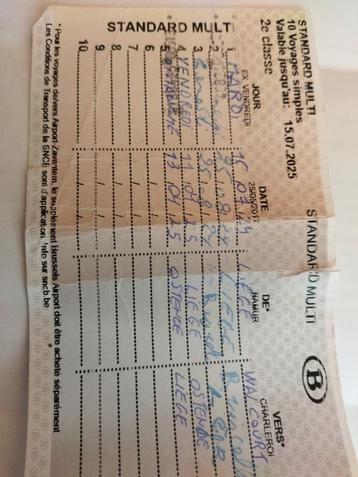 STANDARD MULTI
10 Voyages simples
Valable jusqu'au: 15.07.2025
2e classe
STANDARD MULTI
B
JOUR DATE DE* VERS*
EX VENDREDI 25/08/2017 NAMUR CHARLEROI
1. MARDI 16 07 24 LIEGE WALCOURT
2.
3.
4. VENDREDI 11 04 25 LIEGE OSTENDE
5. 13 04 25 OSTENDE LIEGE
6.
7.
8.
9.
10
STANDARD MULTI
* Pour les voyages de/vers Airport-Zaventem, le supplément Brussels Airport doit être acheté séparément
Les Conditions de Transport de la SNCB sont d'application. Info sur sncb.be